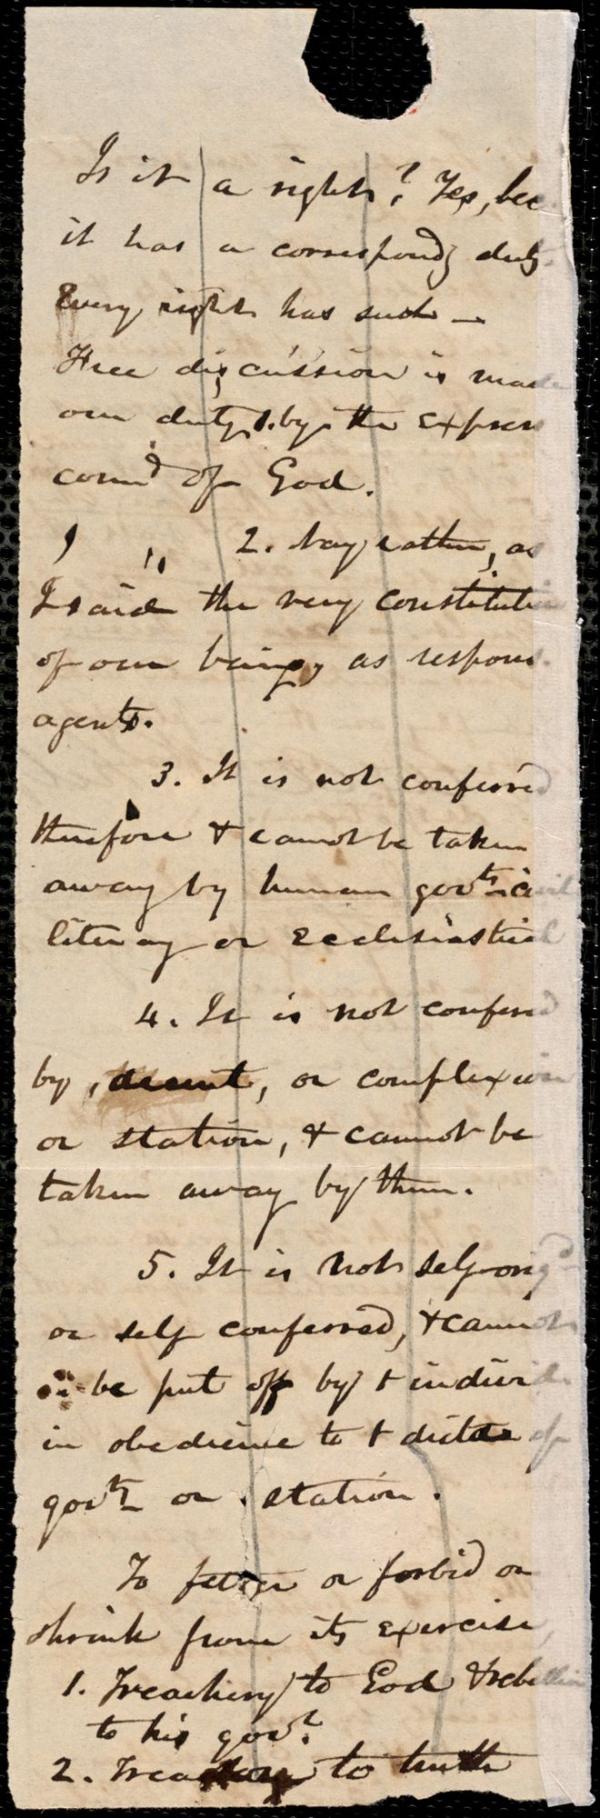 Is it a right? Yes, bec
it has a correspondg duty.
Every right has such —
Free discussion is made
our duty, 1. by the express
comd of God.
" " 2. Nay rather, as
I said the very constitution
of our being, as respons.
agents.
3. It is not conferred
therefore & cannot be taken
away by human govts civil
literary or ecclesiastical
4. It is not conferred
by, descent, or complexion
or station, & cannot be
taken away by them.
5. It is not self-origd
or self conferred, & cannot
be put off by t individ
in obedience to t dictates of
govts or station.
To fetter or forbid or
shrink from its exercise,
1. Treachery to God & rebellion
to his govt.
2. Treachery to truth